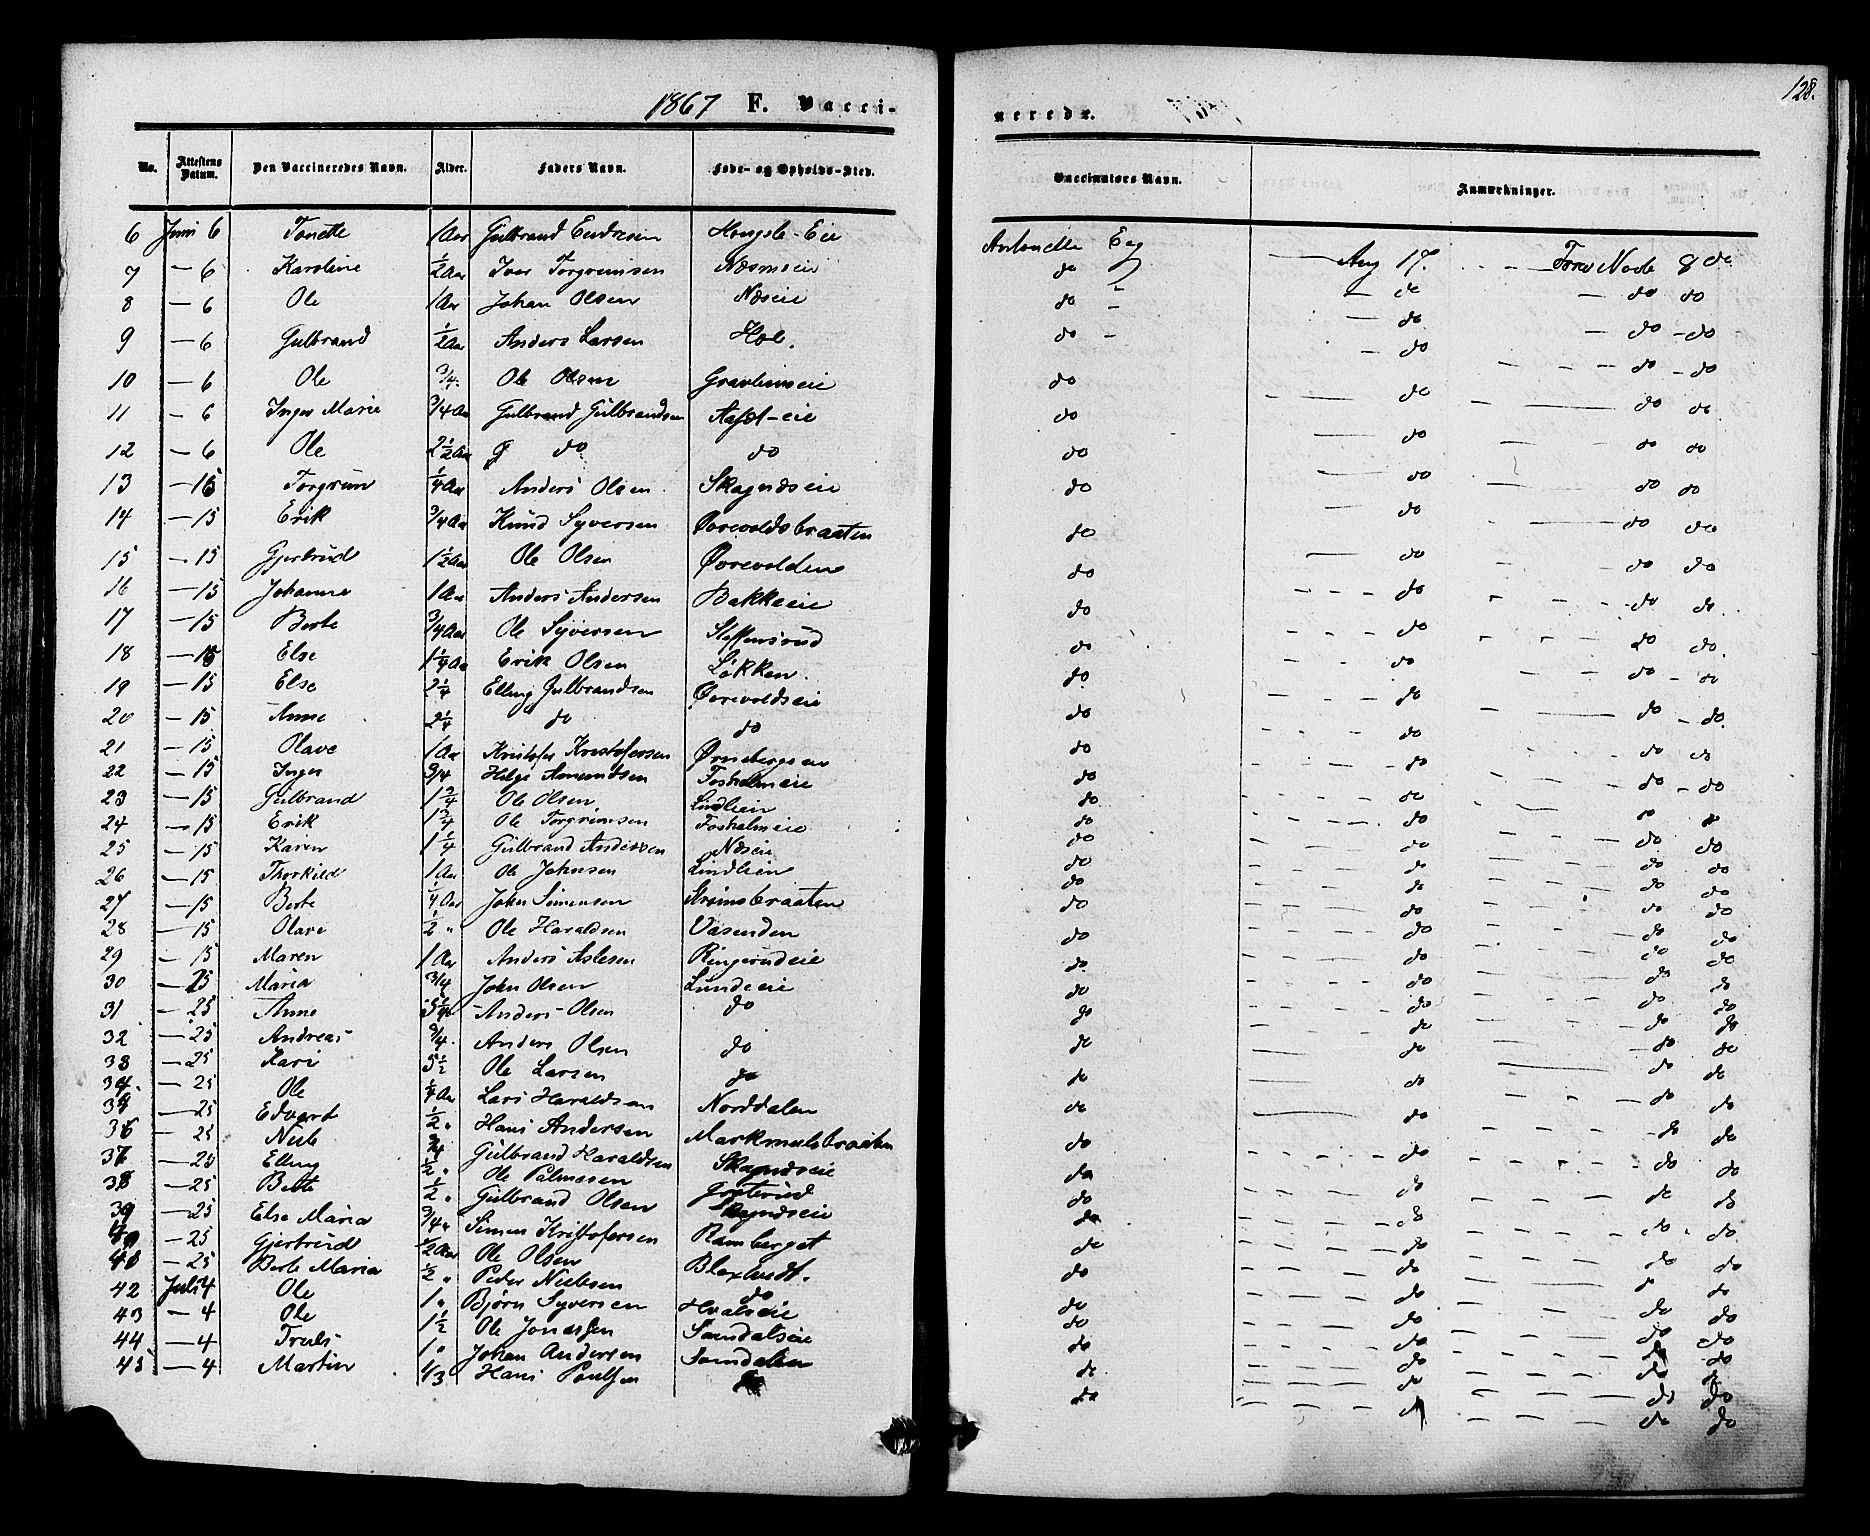 128.
1867 F. Vacci-nerede.
No. Attestens Datum. Den Vaccineredes Navn. Alder. Faders Navn. Føde- og Opholds-Sted. Vaccinators Navn. Anmærkninger.
6 Juni 6 Tonette 1 Aar Gulbrand Endresen Eie Antonette Eeg Aug 17. 8 do
7 — 6 Karoline ½ Aar Iver Torgrimsen Næsmseie do
8 — 6 Ole 1 Aar Johan Olsen Næseie do - — do — do do
9 — 6 Gulbrand ½ Aar Anders Larsen Hole. do - — do — do - do
10 — 6 Ole 3/4. Ole Olsen Gravlimseie do — do — do - do
11 — 6 Inger Marie 3/4 Aar Gulbrand Gulbrandsen eie do — do — do do
12 — 6 Ole 2½ Aar g do do do — do — do do
13 — 15 Torgrim ¼ Aar Anders Olsen Skagnæseie do — do — do do
14 — 15 Erik 3/4 Aar Knud Syversen Øvrevoldsbraaten do — do — do do
15 — 15 Gjertrud 1½ Aar Ole Olsen Øvrevolden do — do — do do
16 — 15 Johanne 1 Aar Anders Andersen Bakkeeie do — do — do do
17 — 15 Berte 3/4 Aar Ole Syversen Steffensrud do — do — do do.
18 — 15 Else 1¼ Aar Erik Olsen Løkken. do — do — do - do
19 — 15 Else 2¼ Elling Gulbrandsen Øvrevoldseie do — do — do - do
20 — 15 Anne 2¼ do do do — do — do do
21 — 15 Olave 1 Aar Kristofer Kristofersen do — do — do - do
22 — 15 Inger 3/4 Helge Amundsen Fosholmeie do — do — do do
23 — 15 Gulbrand 1¾ Ole Olsen Lindlien do — do — do do
24 — 15 Erik 1¾ Ole Torgrimsen Fosholmeie do — do — do do
25 — 15 Karen 1¼ Gulbrand Andersen Næseie do — do — do do
26 — 15 Thorkild 1 Aar Ole Johnsen Lindlien do — do — do do
27 — 15 Berte ¼ Aar John Simensen Strømsbraaten do — do — do do
28 — 15 Olave ½ " Ole Haraldsen Vasenden do — do — do do
29 — 15 Maren 1 Aar Anders Aslesen Ringerudeie do — do — do do
30 — 25 Maria 3/4 John Olsen Lundeeie do — do — do do
31 — 25 Anne 5¼ Anders Olsen do do — do — do do
32 — 25 Andreas 3/4. Anders Olsen do do — do — do do
33 — 25 Kari 5½ Ole Larsen do do — do — do do
34 — 25 Ole ¼ Aar Lars Haraldsen Norddalen do — do — do do
35 — 25 Edvard ½ " Hans Andersen Markmulsbraaten do — do — do do
36 — 25 Niels 3/4 Gulbrand Haraldsen Skagnæseie do — do — do do
37 — 25 Elling ½ " Ole Palmesen do — do — do do
38 — 25 Berte ½ " Gulbrand Olsen do — do — do do
39 — 25 Else Maria 3/4 " Simen Kristofersen Ramberget do — do — do do
40 — 25 Gjertrud ½ Aar Ole Olsen do — do — do do
41 — 25 Berte Maria ½ " Peder Nielsen do do — do — do do
42 Juli 4 Ole 1 " Bjørn Syversen Hvalseie do — do — do do
43 — 4 Ole 1½ Ole Jonassen Somdalseie do — do — do do
44 — 4 Truls 1 " Johan Andersen Somdalen do — do — do do
45 — 4 Martin 1/3 Hans Poulsen do — do — do do